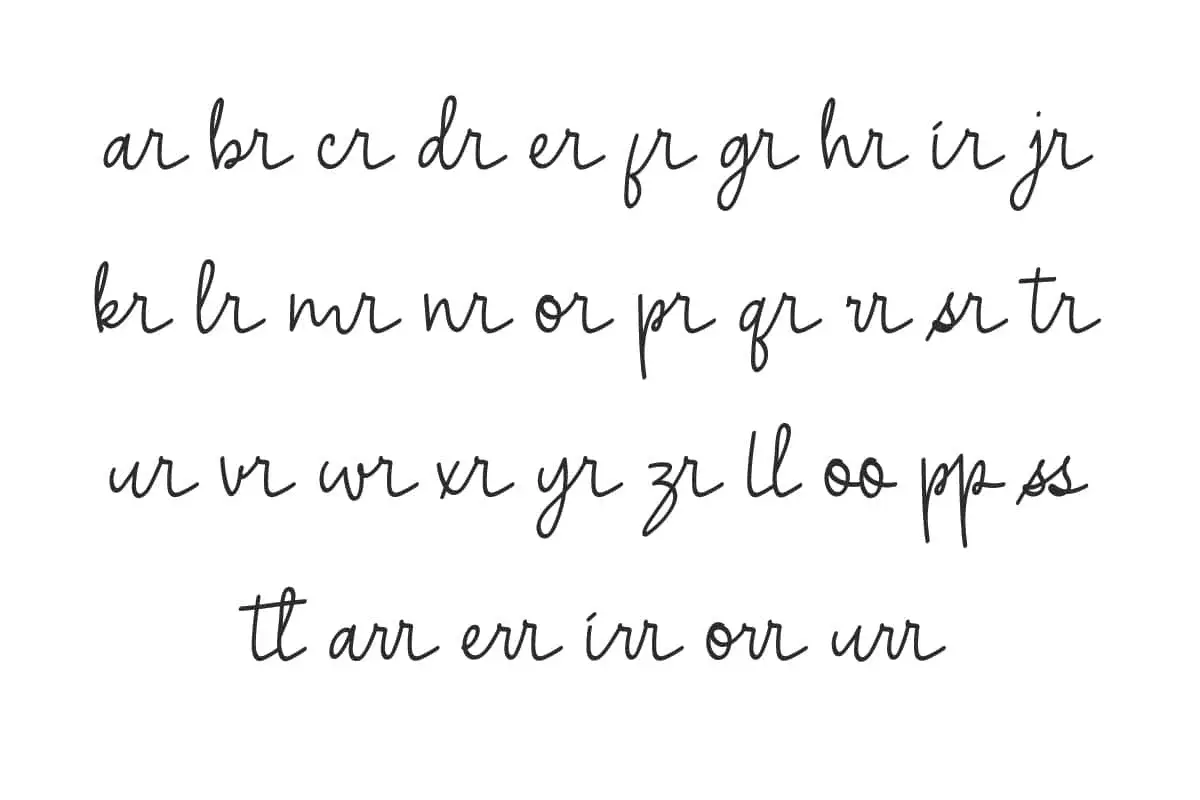 ar br cr dr er fr gr hr ir jr
kr lr mr nr or pr qr rr sr tr
ur vr wr xr yr zr ll oo pp ss
tt arr err irr orr urr